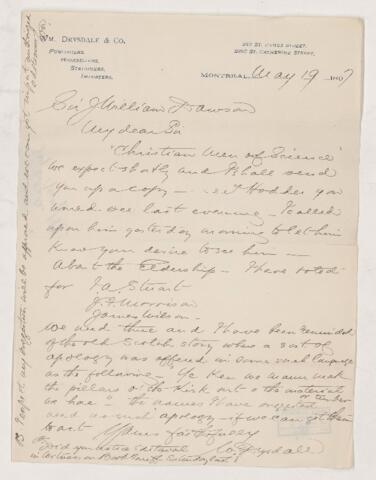 WM. DRYSDALE & CO.
PUBLISHERS,
BOOKSELLERS,
STATIONERS,
IMPORTERS.
232 ST. JAMES STREET,
2365 ST. CATHERINE STREET,
MONTREAL, May 19 1897
Sir J William Dawson
My dear Sir
"Christian Men of Science"
We expect shortly and shall send
you up a copy - Hodder you
last evening - I called
upon him yesterday morning to let him
know your desire to see him -
About the Eldership - I have voted
for J. A. Stuart
J. Morrison
James Wilson -
We need three and I have been reminded
of the old Scotch story when a sort of
apology was offered in some such language
as the following - Ye Ken we maun mak
the pillars o' the Kirk out o the material
or timber
we hae - the names I have suggested
need no such apology - if we can get them
to act Yours faithfully
W. Drysdale
Did you notice Editorial
in on Book Tariff Saturday last